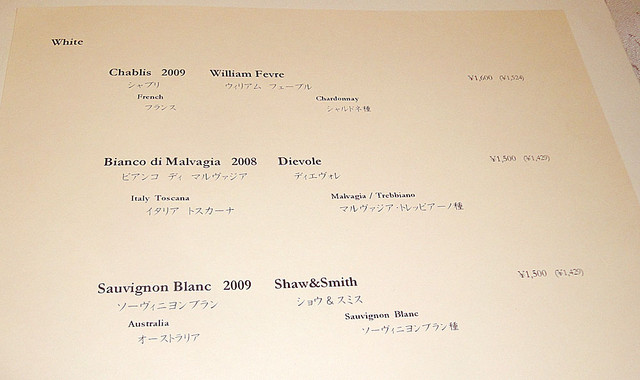 White
Chablis 2009 William Fevre ¥1,600 (¥1,524)
シャブリ ウィリアム フェーブル
French Chardonnay
フランス シャルドネ種
Bianco di Malvagia 2008 Dievole ¥1,500 (¥1,429)
ビアンコ ディ マルヴァジア ディエヴォレ
Italy Toscana Malvagia / Trebbiano
イタリア トスカーナ マルヴァジア・トレッビアーノ種
Sauvignon Blanc 2009 Shaw&Smith ¥1,500 (¥1,429)
ソーヴィニヨンブラン ショウ & スミス
Australia Sauvignon Blanc
オーストラリア ソーヴィニヨンブラン種